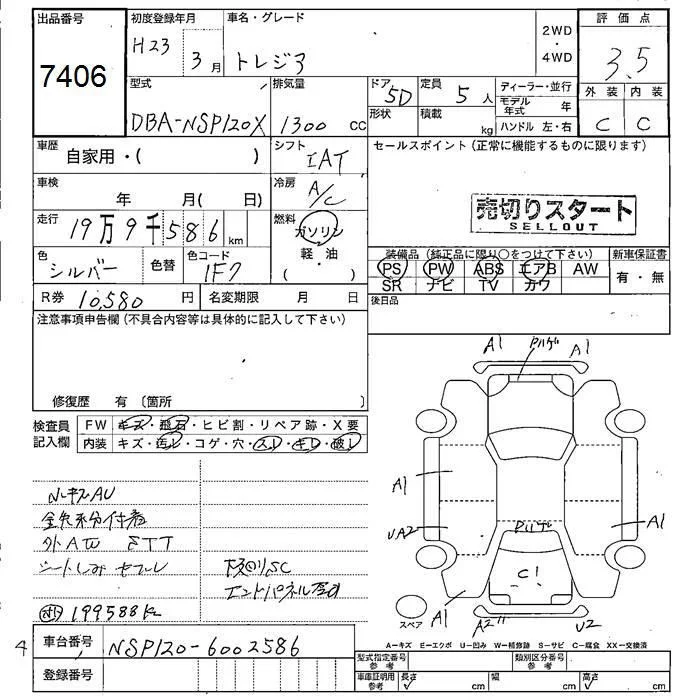 出品番号 7406
初度登録年月 H23 3月
車名・グレード トレジア
2WD・4WD
評価点 3.5
外装 C 内装 C
型式 DBA-NSP120X
排気量 1300 cc
ドア 5D
形状
定員 5人
積載 kg
ディーラー・並行
モデル年式 年
ハンドル 左・右
車歴 自家用・( )
シフト IAT
セールスポイント(正常に機能するものに限ります)
車検 年 月( 日)
冷房 A/C
売切りスタート
SELLOUT
走行 19万9千586km
燃料 ガソリン 軽・油 ( )
色 シルバー 色替 色コード 1F7
装備品(純正品に限り○をつけて下さい) 新車保証書
PS PW ABS エアB AW 有・無
SR ナビ TV カワ
R券 10,580円 名変期限 月 日
後日品
注意事項申告欄(不具合内容等は具体的に記入して下さい)
修復歴 有 〔箇所 〕
検査員記入欄 FW キズ・飛石・ヒビ割・リペア跡・X要
内装 キズ・汚レ・コゲ・穴・スレ・キレ・破レ
A1 A1
小キズAU
A1
UA2 A1
外AW
シートしみ
C1
199588K
A1 A2 U2
スペア
A-キズ E-エクボ U-凹み W-補修跡 S-サビ C-腐食 XX-交換済
4
車台番号 NSP120-6002586
登録番号
型式指定番号 参考 類別区分番号 参考
車庫証明用 参考 長さ cm 幅 cm 高さ cm